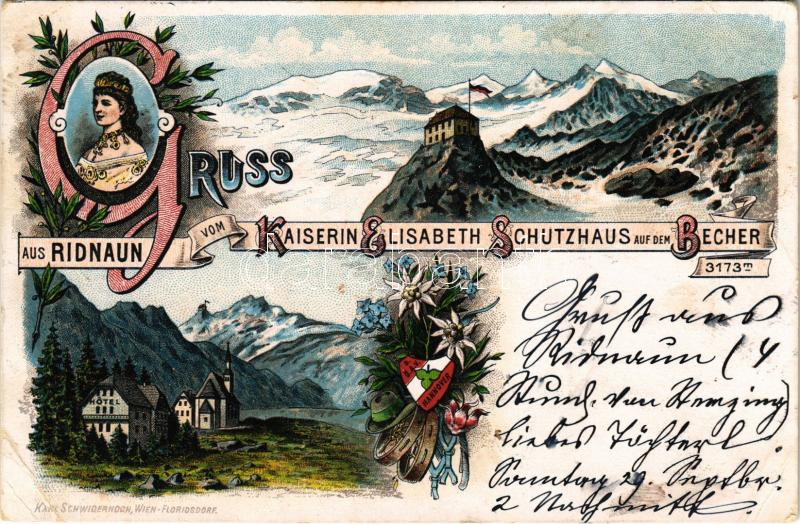 GRUSS
AUS RIDNAUN VOM KAISERIN ELISABETH SCHÜTZHAUS AUF DEM BECHER
3173 m
HÔTEL
HANNOVER
Gruß aus
Ridnaun (4
Stund. von Sterzing)
liebes Töchterl.
Samstag 29. Septbr.
2 Nachmitt.
KARL SCHWIDERNOCH, WIEN-FLORIDSDORF.